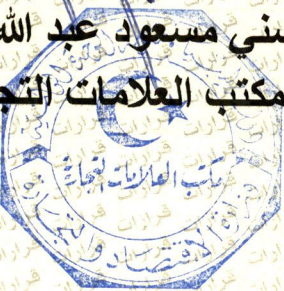 سني مسعود عبد الله
مكتب العلامات التج
مكتب العلامات التجارية
وزارة الاقتصاد والتجارة